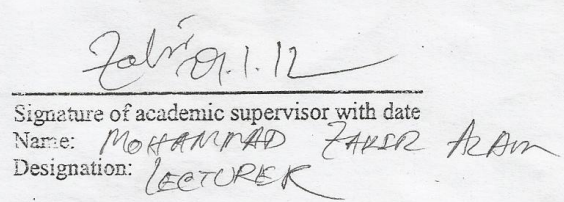 Zakir 01.1.12
Signature of academic supervisor with date
Name: MOHAMMAD ZAKIR ALAM
Designation: LECTURER